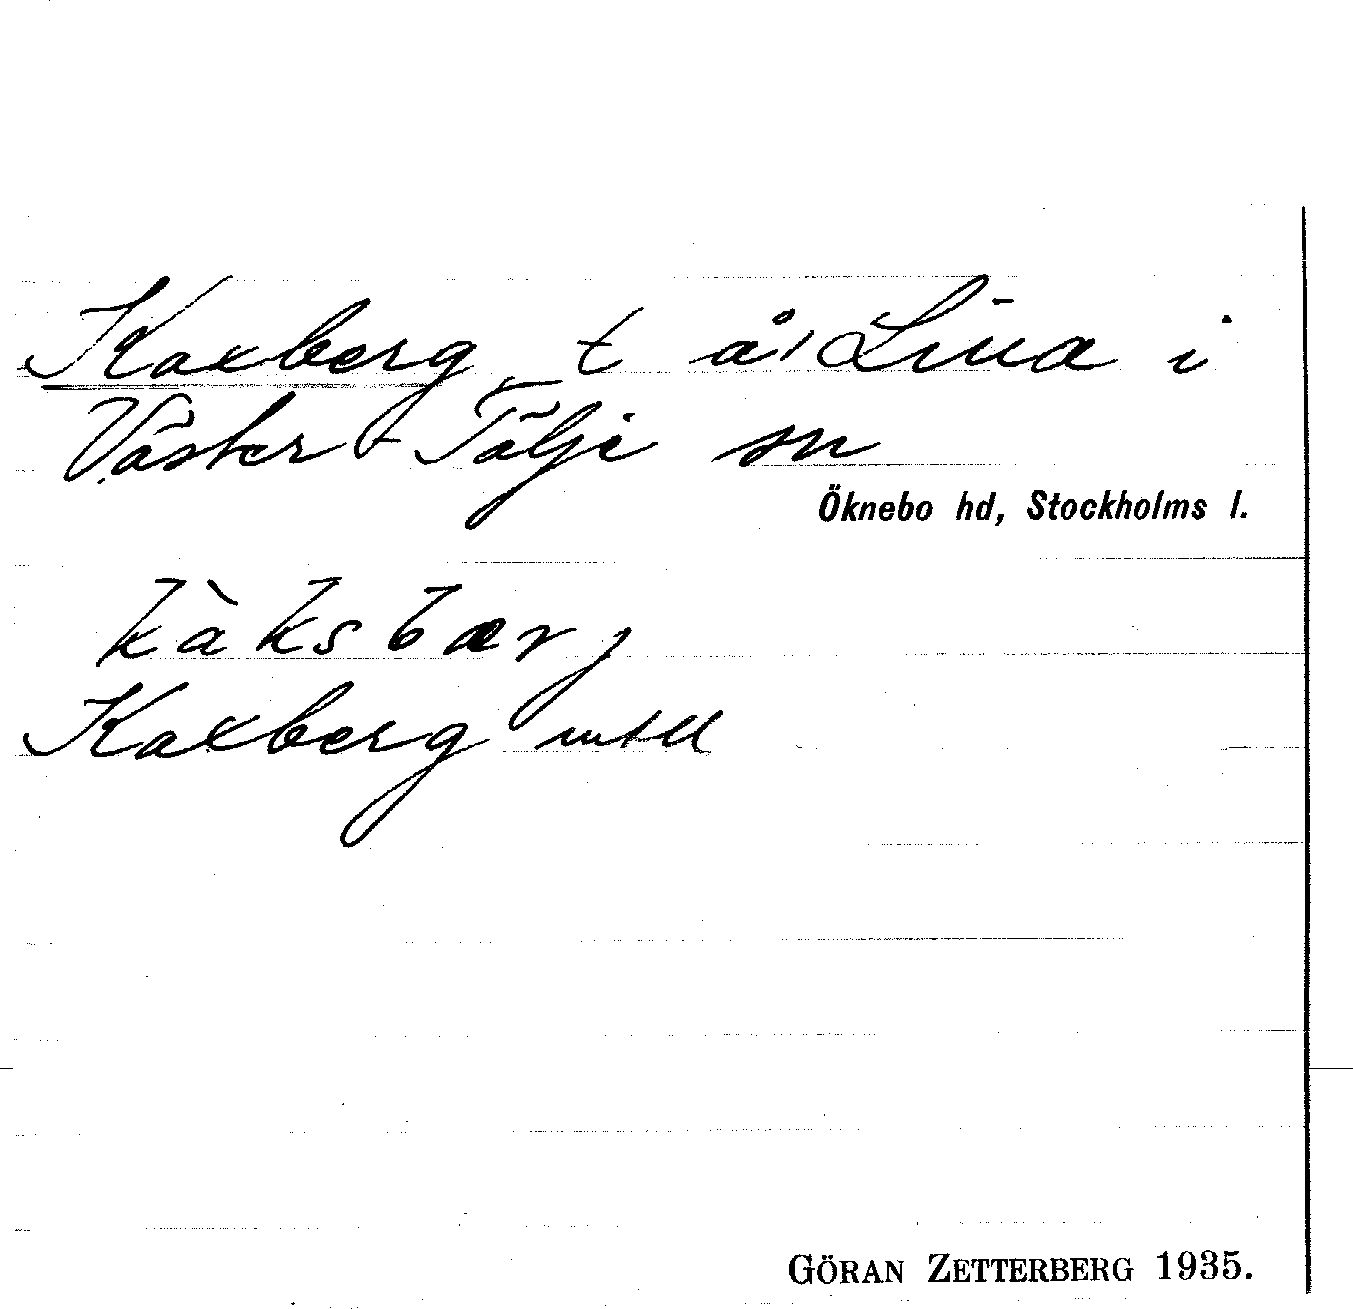 Kaxberg t å, Lina i
Väster-Tälje sn
Öknebo hd, Stockholms l.
kàksbærj
Kaxberg mtll
GÖRAN ZETTERBERG 1935.